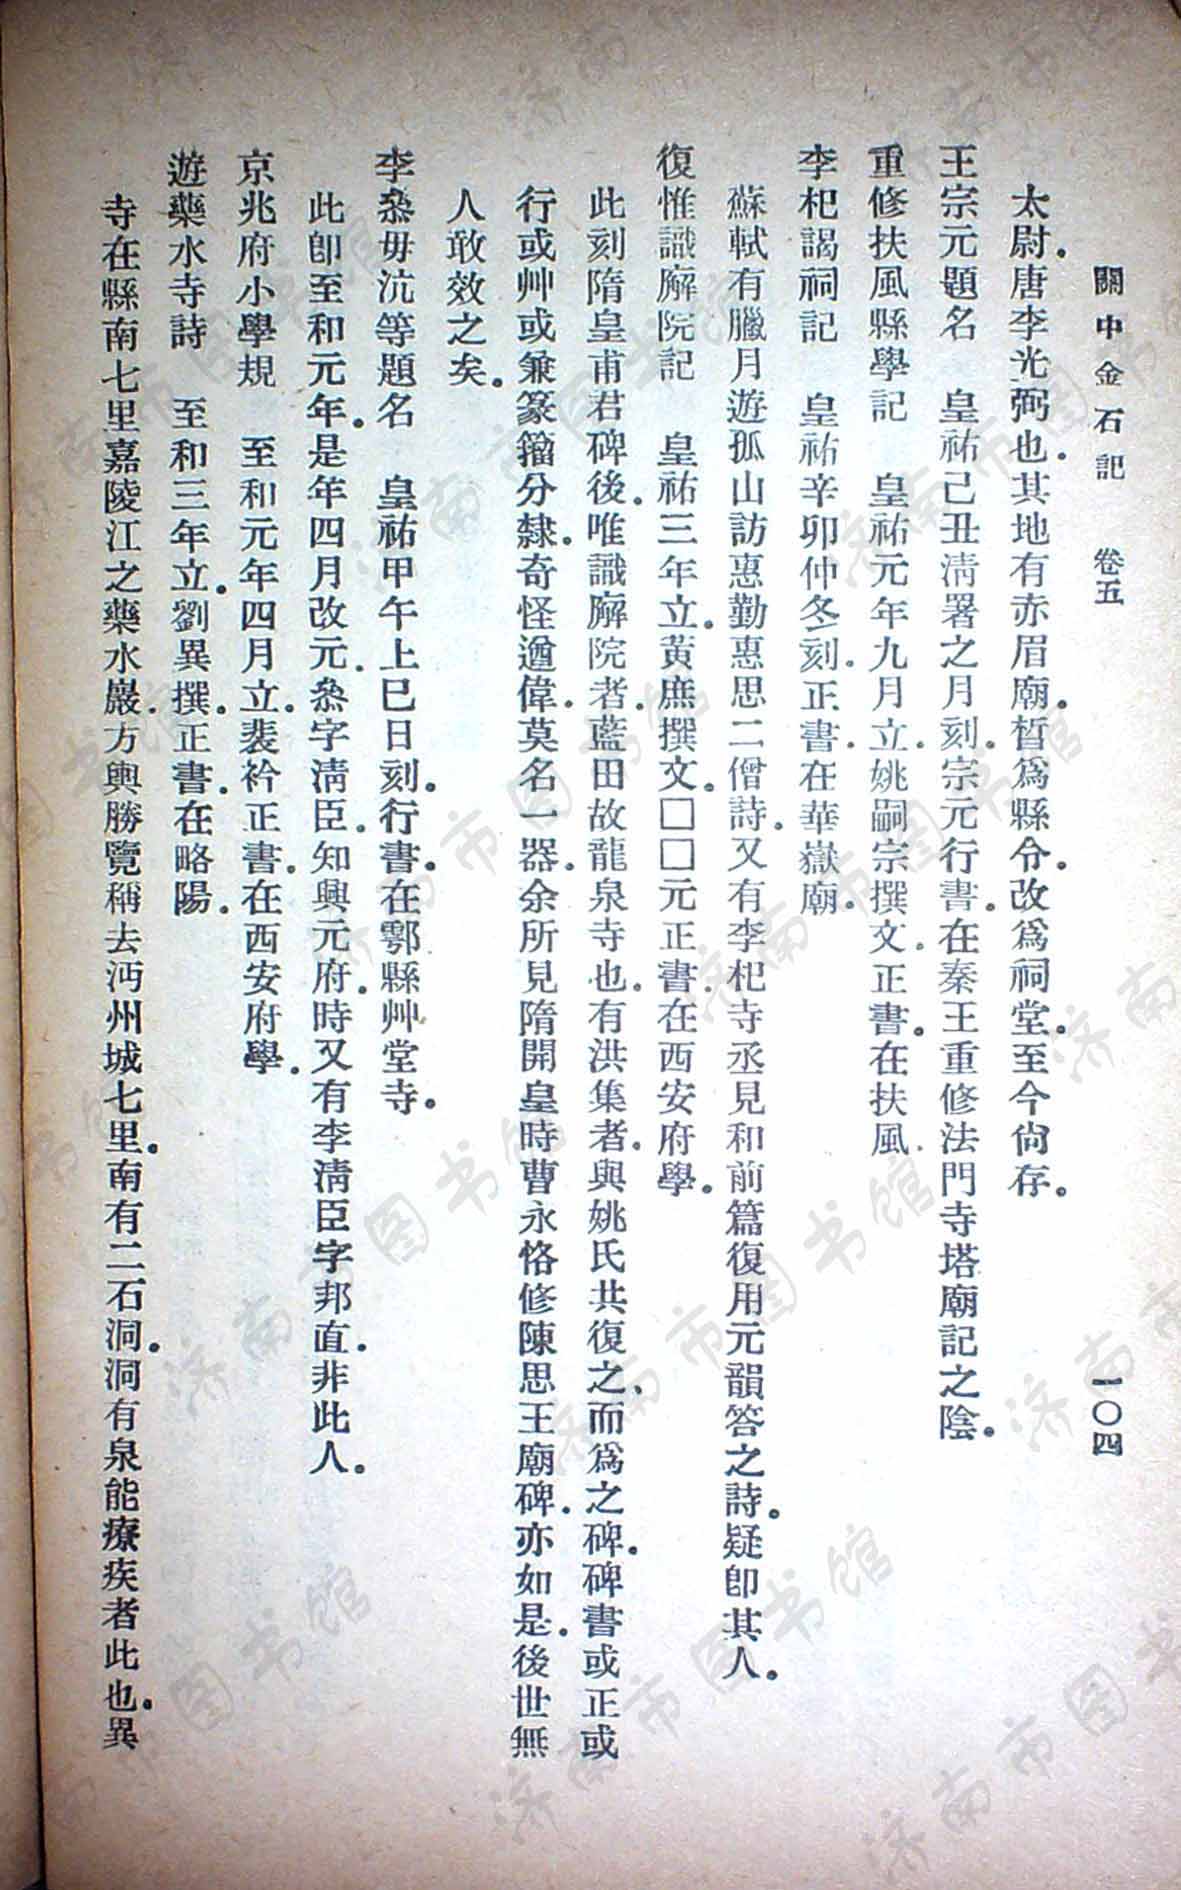 關中金石記　卷五　一〇四
太尉。唐李光弼也。其地有赤眉廟。晳爲縣令。改爲祠堂。至今尙存。
王宗元題名　皇祐己丑淸署之月刻。宗元行書。在秦王重修法門寺塔廟記之陰。
重修扶風縣學記　皇祐元年九月立。姚嗣宗撰文。正書。在扶風。
李杞謁祠記　皇祐辛卯仲冬刻。正書。在華嶽廟。
蘇軾有臘月遊孤山訪惠勤惠思二僧詩。又有李杞寺丞見和前篇復用元韻答之詩。疑卽其人。
復惟識廨院記　皇祐三年立。黃庶撰文。□□元正書。在西安府學。
此刻隋皇甫君碑後。唯識廨院者。藍田故龍泉寺也。有洪集者。與姚氏共復之、而爲之碑。碑書或正或
行或艸或兼篆籀分隸。奇怪遒偉。莫名一器。余所見隋開皇時曹永恪修陳思王廟碑。亦如是。後世無
人敢效之矣。
李叅毋沆等題名　皇祐甲午上巳日刻。行書。在鄠縣艸堂寺。
此卽至和元年。是年四月改元。叅字淸臣。知興元府。時又有李淸臣字邦直。非此人。
京兆府小學規　至和元年四月立。裴衿正書。在西安府學。
遊藥水寺詩　至和三年立。劉異撰。正書。在略陽。
寺在縣南七里嘉陵江之藥水巖。方輿勝覽稱去沔州城七里。南有二石洞。洞有泉能療疾者此也。異
济南市图书馆